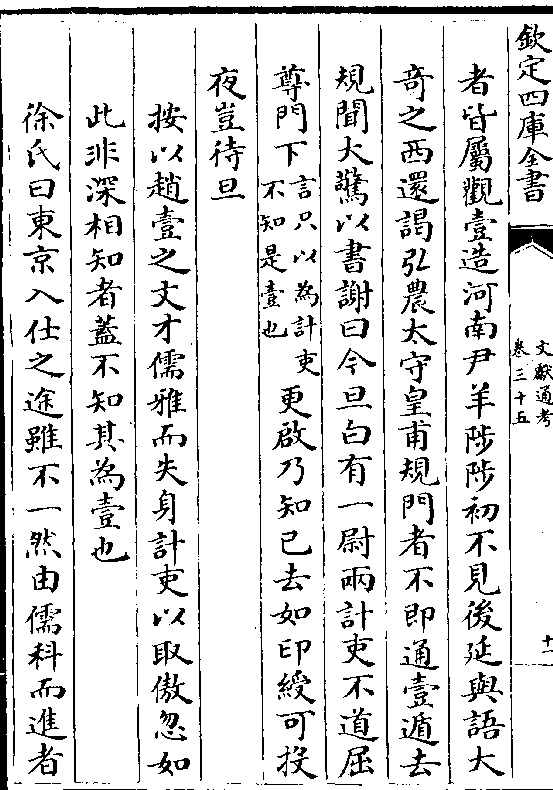 欽定四庫全書
文獻通考
卷三十五
十一
者皆屬觀壹造河南尹羊陟陟初不見後延與語大
竒之西還謁弘農太守皇甫規門者不即通壹遁去
規聞大驚以書謝曰今旦白有一尉兩計吏不道屈
尊門下言只以為計吏不知是壹也更啟乃知已去如印綬可投
夜豈待旦
按以趙壹之文才儒雅而失身計吏以取傲忽如
此非深相知者蓋不知其為壹也
徐氏曰東京入仕之途雖不一然由儒科而進者